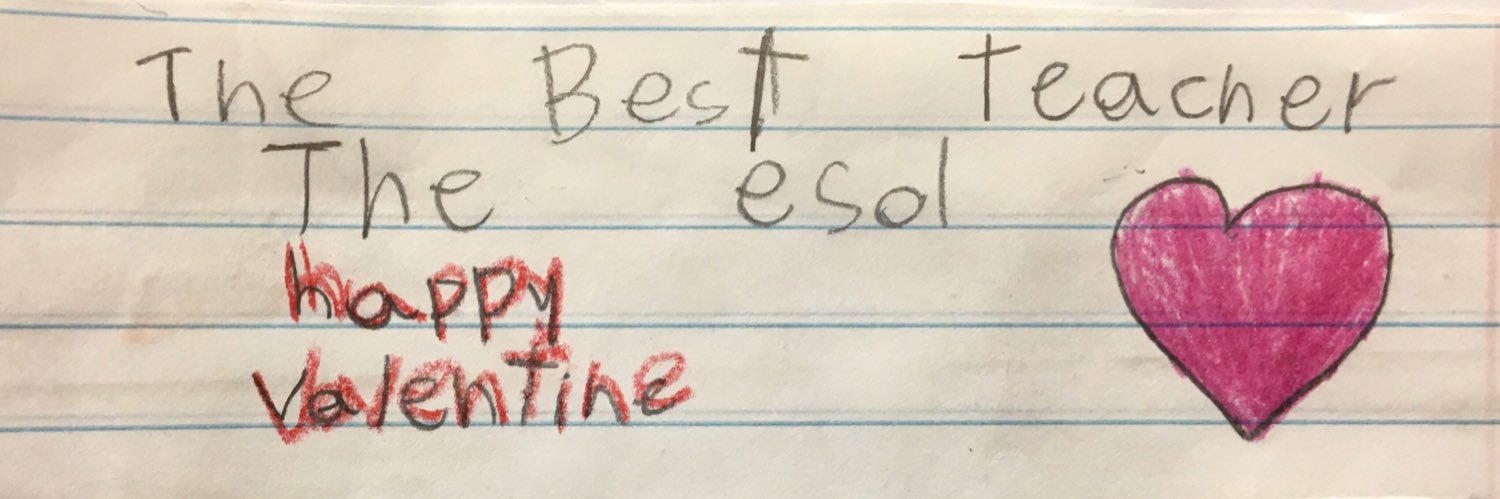 The Best Teacher
The esol
happy
Valentine